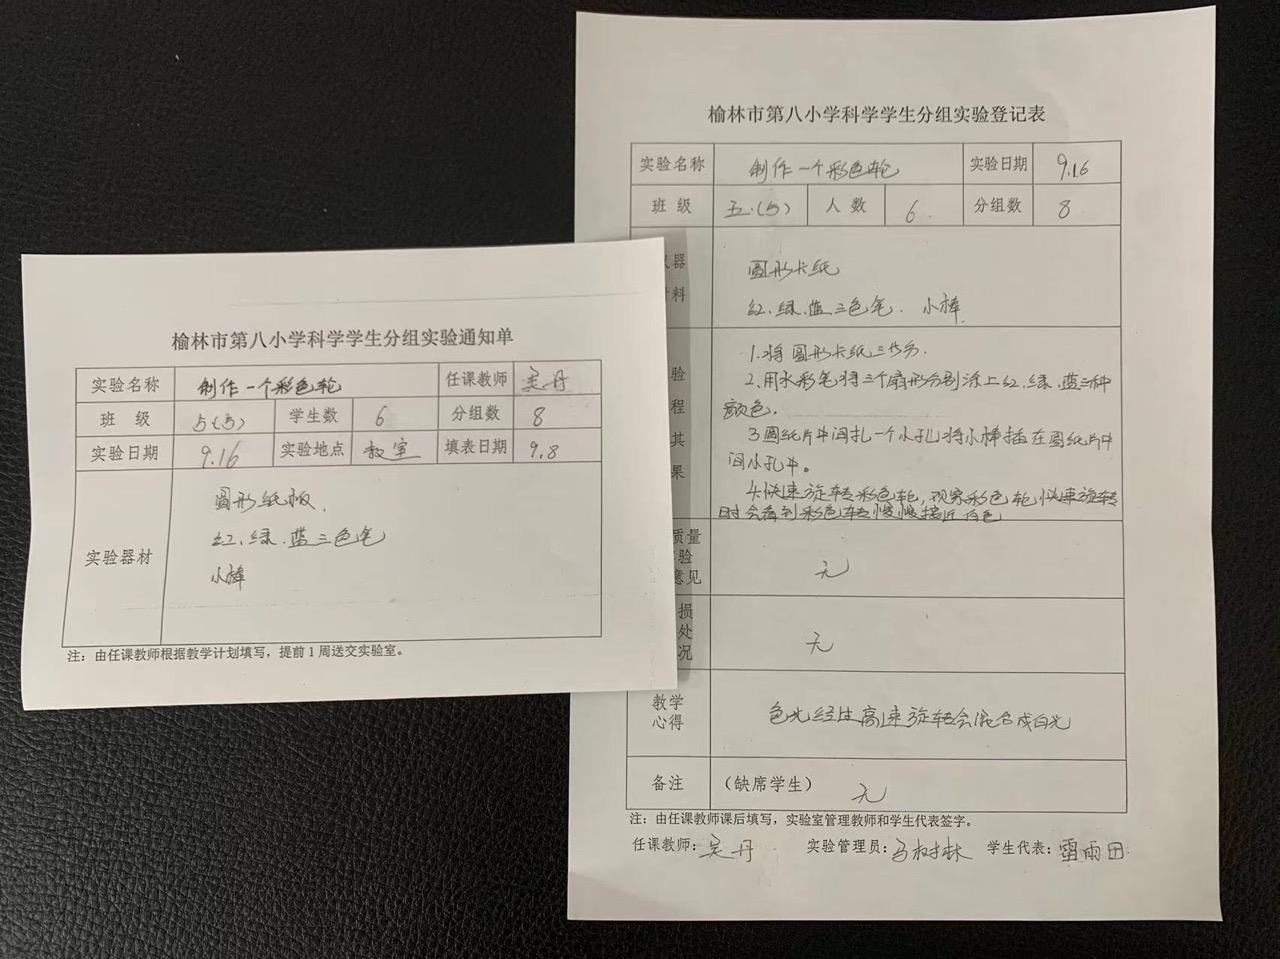 榆林市第八小学科学学生分组实验通知单
实验名称 制作一个彩色轮 任课教师 吴丹
班 级 5(5) 学生数 6 分组数 8
实验日期 9.16 实验地点 教室 填表日期 9.8
实验器材
圆形纸板、
红、绿、蓝三色笔
小棒
注：由任课教师根据教学计划填写，提前1周送交实验室。
榆林市第八小学科学学生分组实验登记表
实验名称 制作一个彩色轮 实验日期 9.16
班 级 五.(5) 人 数 6. 分组数 8
器
料
圆形卡纸
红、绿、蓝三色笔. 小棒
验
程
其
果
1.将圆形卡纸三等分.
2.用水彩笔将三个扇形分别涂上红、绿、蓝三种
颜色.
3.圆纸片中间扎一个小孔将小棒插在圆纸片中
间小孔中。
4.快速旋转彩色轮,观察彩色轮快速旋转
时会看到彩色轮慢慢接近白色
质量
验
意见
无
损
处
况
无
教学
心得
色光经过高速旋转会混合成白光
备注 （缺席学生） 无
注：由任课教师课后填写，实验室管理教师和学生代表签字。
任课教师：吴丹 实验管理员：马树林 学生代表：雷雨田